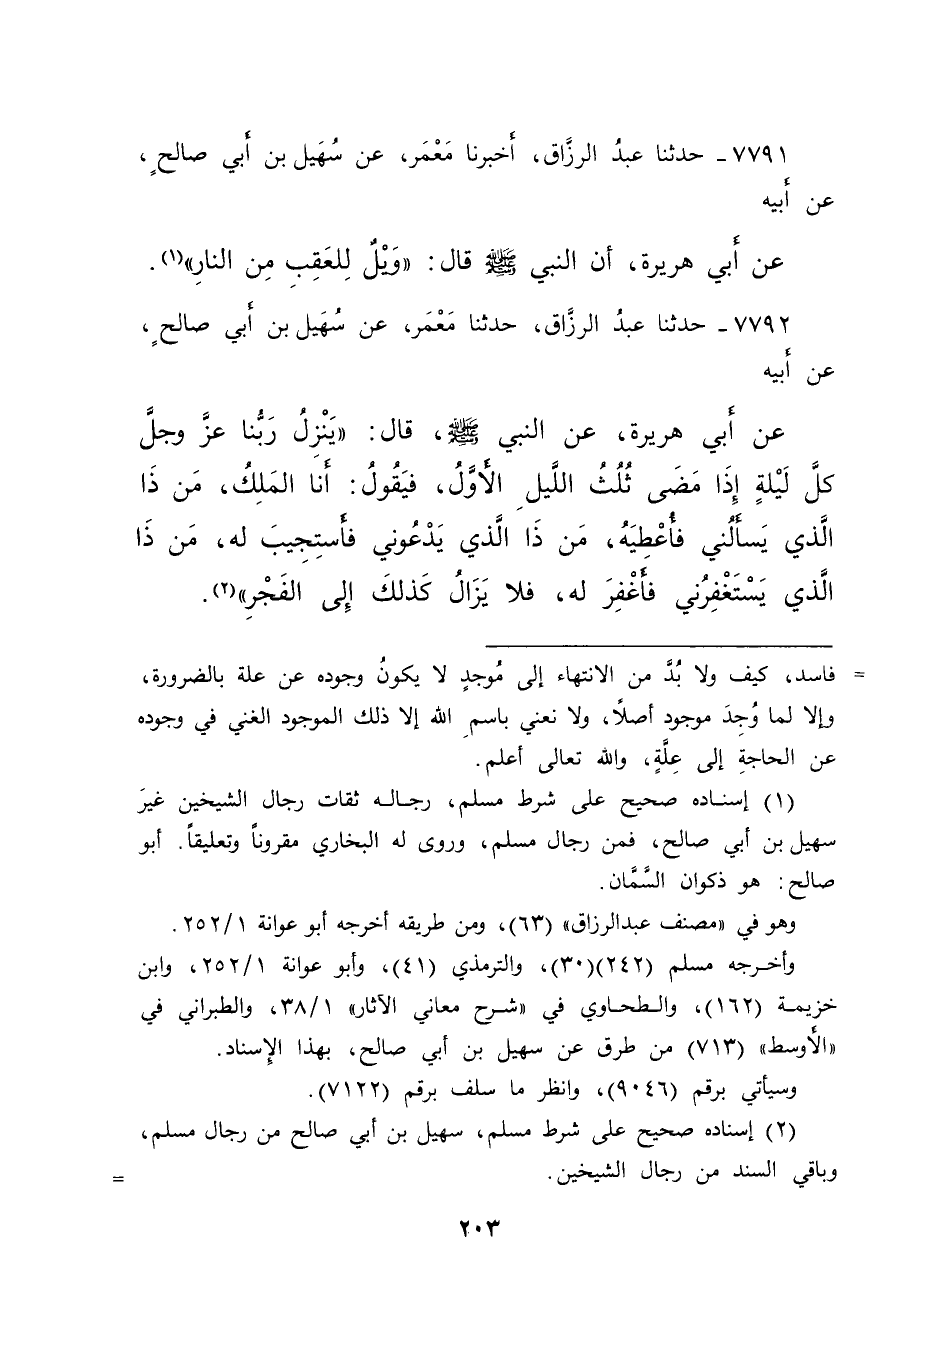 ٧٧٩١ ـ حدثنا عبدُ الرزَّاق، أَخبرنا مَعْمَر، عن سُهَيل بن أَبي صالحٍ،
عن أَبيه
عن أَبي هريرة، أن النبي ﷺ قال: «وَيْلٌ لِلعَقِبِ مِن النارِ»(١).
٧٧٩٢ ـ حدثنا عبدُ الرزَّاق، حدثنا مَعْمَر، عن سُهَيل بن أَبي صالحٍ،
عن أَبيه
عن أَبي هريرة، عن النبي ﷺ، قال: «يَنْزِلُ رَبُّنا عزَّ وجلَّ
كلَّ لَيْلةٍ إِذَا مَضَى ثُلُثُ اللَّيلِ الأَوَّلُ، فيَقُولُ: أَنا المَلِكُ، مَن ذَا
الَّذي يَسأَلُني فأُعْطِيَهُ، مَن ذَا الَّذي يَدْعُوني فأَستِجيبَ له، مَن ذَا
الَّذي يَسْتَغْفِرُني فأَغْفِرَ له، فلا يَزَالُ كَذلكَ إِلى الفَجْرِ»(٢).
= فاسد، كيف ولا بُدَّ من الانتهاء إلى مُوجدٍ لا يكونُ وجوده عن علة بالضرورة،
وإلا لما وُجِدَ موجود أصلاً، ولا نعني باسمِ الله إلا ذلك الموجود الغني في وجوده
عن الحاجةِ إلى عِلَّةٍ، والله تعالى أعلم.
(١) إسناده صحيح على شرط مسلم، رجاله ثقات رجال الشيخين غيرَ
سهيل بن أبي صالح، فمن رجال مسلم، وروى له البخاري مقروناً وتعليقاً. أبو
صالح: هو ذكوان السَّمَّان.
وهو في «مصنف عبدالرزاق» (٦٣)، ومن طريقه أخرجه أبو عوانة ٢٥٢/١.
وأخرجه مسلم (٢٤٢)(٣٠)، والترمذي (٤١)، وأبو عوانة ٢٥٢/١، وابن
خزيمة (١٦٢)، والطحاوي في «شرح معاني الآثار» ٣٨/١، والطبراني في
«الأَوسط» (٧١٣) من طرق عن سهيل بن أبي صالح، بهذا الإِسناد.
وسيأتي برقم (٩٠٤٦)، وانظر ما سلف برقم (٧١٢٢).
(٢) إسناده صحيح على شرط مسلم، سهيل بن أبي صالح من رجال مسلم،
وباقي السند من رجال الشيخين. =
٢٠٣